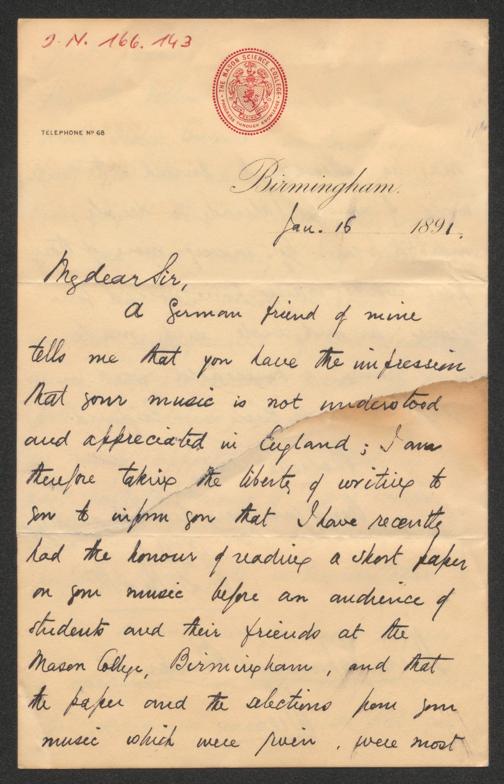 J. N. 166.143
THE MASON SCIENCE COLLEGE
PROGRESS THROUGH KNOWLEDGE
TELEPHONE Nº 68
Birmingham.
Jan. 16 1891.
My dear Sir,
A German friend of mine
tells me that you have the impression
that your music is not understood
and appreciated in England; I am
therefore taking the liberty of writing to
you to inform you that I have recently
had the honour of reading a short paper
on your music before an audience of
students and their friends at the
Mason College, Birmingham, and that
the paper and the selections from your
music which were given, were most